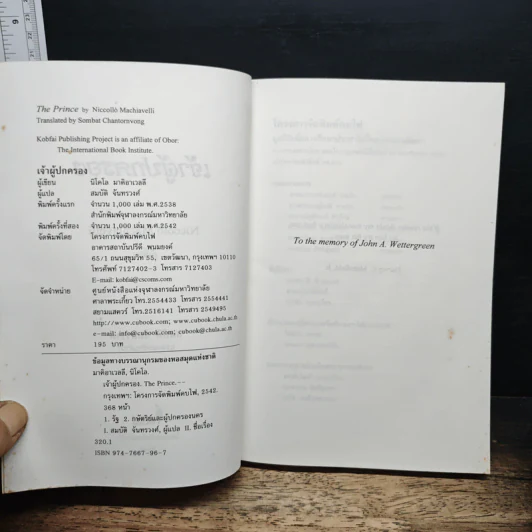 6
The Prince by Niccolò Machiavelli
Translated by Sombat Chantornvong
Kobfai Publishing Project is an affiliate of Obor:
The International Book Institute.
เจ้าผู้ปกครอง
ผู้เขียน นิโคโล มาคิอาเวลลี
ผู้แปล สมบัติ จันทรวงศ์
พิมพ์ครั้งแรก จำนวน 1,000 เล่ม พ.ศ.2538
สำนักพิมพ์จุฬาลงกรณ์มหาวิทยาลัย
พิมพ์ครั้งที่สอง จำนวน 1,000 เล่ม พ.ศ.2542
จัดพิมพ์โดย โครงการจัดพิมพ์คบไฟ
อาคารสถาบันปรีดี พนมยงค์
65/1 ถนนสุขุมวิท 55, เขตวัฒนา, กรุงเทพฯ 10110
โทรศัพท์ 7127402-3 โทรสาร 7127403
E-mail: kobfai@cscoms.com
จัดจำหน่าย ศูนย์หนังสือแห่งจุฬาลงกรณ์มหาวิทยาลัย
ศาลาพระเกี้ยว โทร.2554433 โทรสาร 2554441
สยามสแควร์ โทร.2516141 โทรสาร 2549495
http://www.cubook.com; www.cubook.chula.ac.th
e-mail: info@cubook.com; cubook@chula.ac.th
ราคา 195 บาท
ข้อมูลทางบรรณานุกรมของหอสมุดแห่งชาติ
มาคิอาเวลลี, นิโคโล.
เจ้าผู้ปกครอง. The Prince.--
กรุงเทพฯ: โครงการจัดพิมพ์คบไฟ, 2542.
368 หน้า
1. รัฐ 2. กษัตริย์และผู้ปกครองนคร
I. สมบัติ จันทรวงศ์, ผู้แปล II. ชื่อเรื่อง
320.1
ISBN 974-7667-96-7
To the memory of John A. Wettergreen